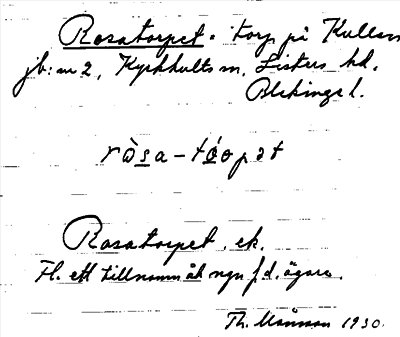 Rosatorpet. torp på Kullen
jb: nr 2, Kyrkhults sn, Listers hd.
Blekinge l.
ròsa-tóopət
Rosatorpet, ek.
Fl. ett tillnamn åt ngn f.d. ägare.
Th. Månsson 1930.